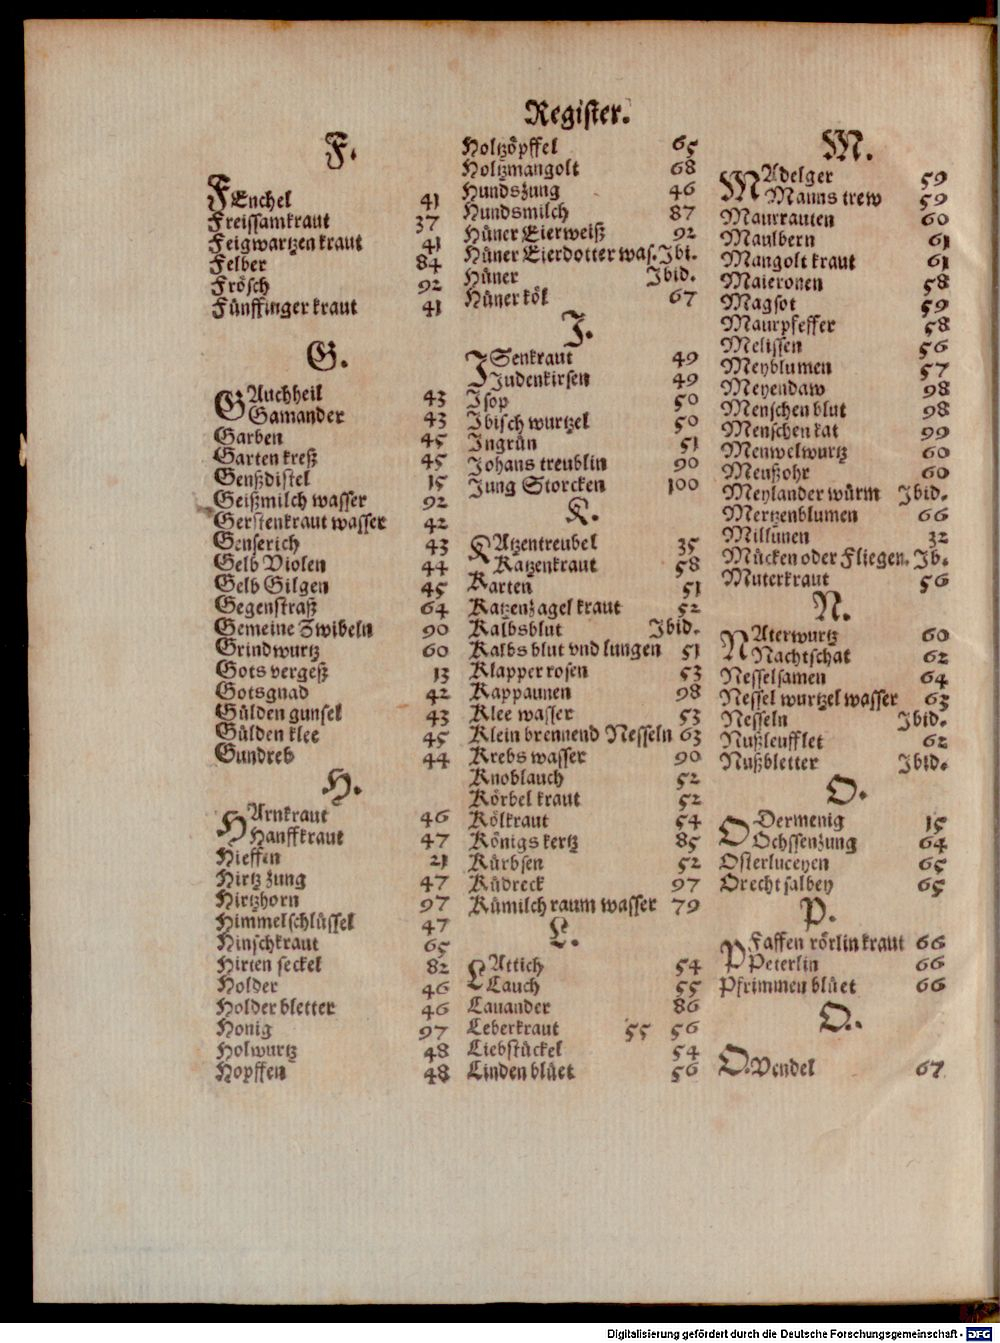 Register.
F.
FEnchel 41
Freissamkraut 37
Feigwartzen kraut 41
Felber 84
Frösch 92
Fünffinger kraut 41
G.
GAuchheil 43
Gamander 43
Garben 45
Garten kreß 45
Genßdistel 15
Geißmilch wasser 92
Gerstenkraut wasser 42
Genserich 43
Gelb Violen 44
Gelb Gilgen 45
Gegenstraß 64
Gemeine Zwibeln 90
Grindwurtz 60
Gots vergeß 13
Gotsgnad 42
Gülden gunsel 43
Gülden klee 45
Gundreb 44
H.
HArnkraut 46
Hanffkraut 47
Hieffen 21
Hirtz zung 47
Hirtzhorn 97
Himmelschlüssel 47
Hinschkraut 65
Hirten seckel 82
Holder 46
Holder bletter 46
Honig 97
Holwurtz 48
Hopffen 48
Holtzöpffel 65
Holtzmangolt 68
Hundszung 46
Hundsmilch 87
Hüner Eierweiß 92
Hüner Eierdotter was. Ibi.
Hüner Ibid.
Hüner kök 67
I.
ISenkraut 49
Judenkirsen 49
Isop 50
Ibisch wurtzel 50
Ingrün 51
Johans treublin 90
Jung Storcken 100
K.
KAtzentreubel 35
Katzenkraut 58
Karten 51
Katzenzagel kraut 52
Kalbsblut Ibid.
Kalbs blut vnd lungen 51
Klapper rosen 53
Kappaunen 98
Klee wasser 53
Klein brennend Nesseln 63
Krebs wasser 90
Knoblauch 52
Körbel kraut 52
Kölkraut 54
Königs kertz 85
Kürbsen 52
Küdreck 97
Kümilch raum wasser 79
L.
LAttich 54
Lauch 55
Lauander 86
Leberkraut 55 56
Liebstückel 54
Linden blüet 56
M.
MAdelger 59
Manns trew 59
Maurrauten 60
Maulbern 61
Mangolt kraut 61
Maieronen 58
Magsot 59
Maurpfeffer 58
Melissen 56
Meyblumen 57
Meyendaw 98
Menschen blut 98
Menschen kat 99
Menwelwurtz 60
Meußohr 60
Meylander würm Ibid.
Mertzenblumen 66
Millunen 32
Mücken oder Fliegen. Ib.
Muterkraut 56
N.
NAterwurtz 60
Nachtschat 62
Nesselsamen 64
Nessel wurtzel wasser 63
Nesseln Ibid.
Nußleufflet 62
Nußbletter Ibid.
O.
ODermenig 15
Ochssenzung 64
Osterluceyen 65
Orecht salbey 65
P.
PFaffen rörlin kraut 66
Peterlin 66
Pfrimmen blüet 66
Q.
Q.Vendel 67
Digitalisierung gefördert durch die Deutsche Forschungsgemeinschaft - DFG